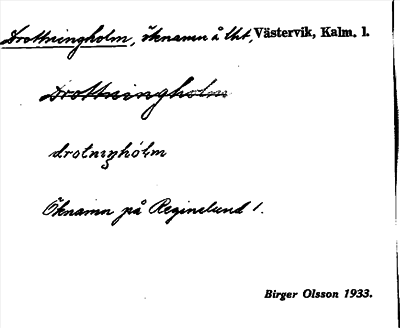 Drottningholm, öknamn å lht, Västervik, Kalm. l.
Drottningholm
drotnıŋhólm
Öknamn på Reginelund 1.
Birger Olsson 1933.